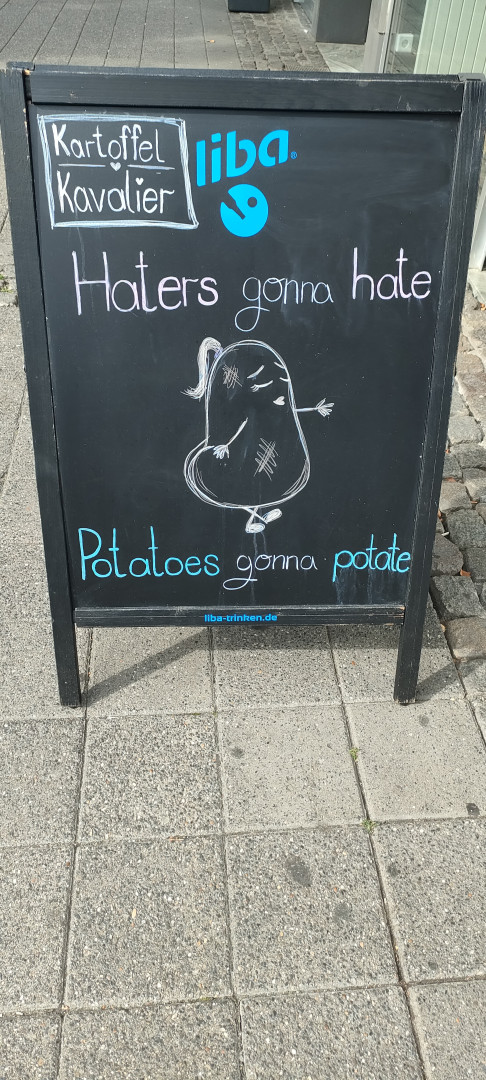 Kartoffel
Kavalier
liba®
Haters gonna hate
Potatoes gonna potate
liba-trinken.de